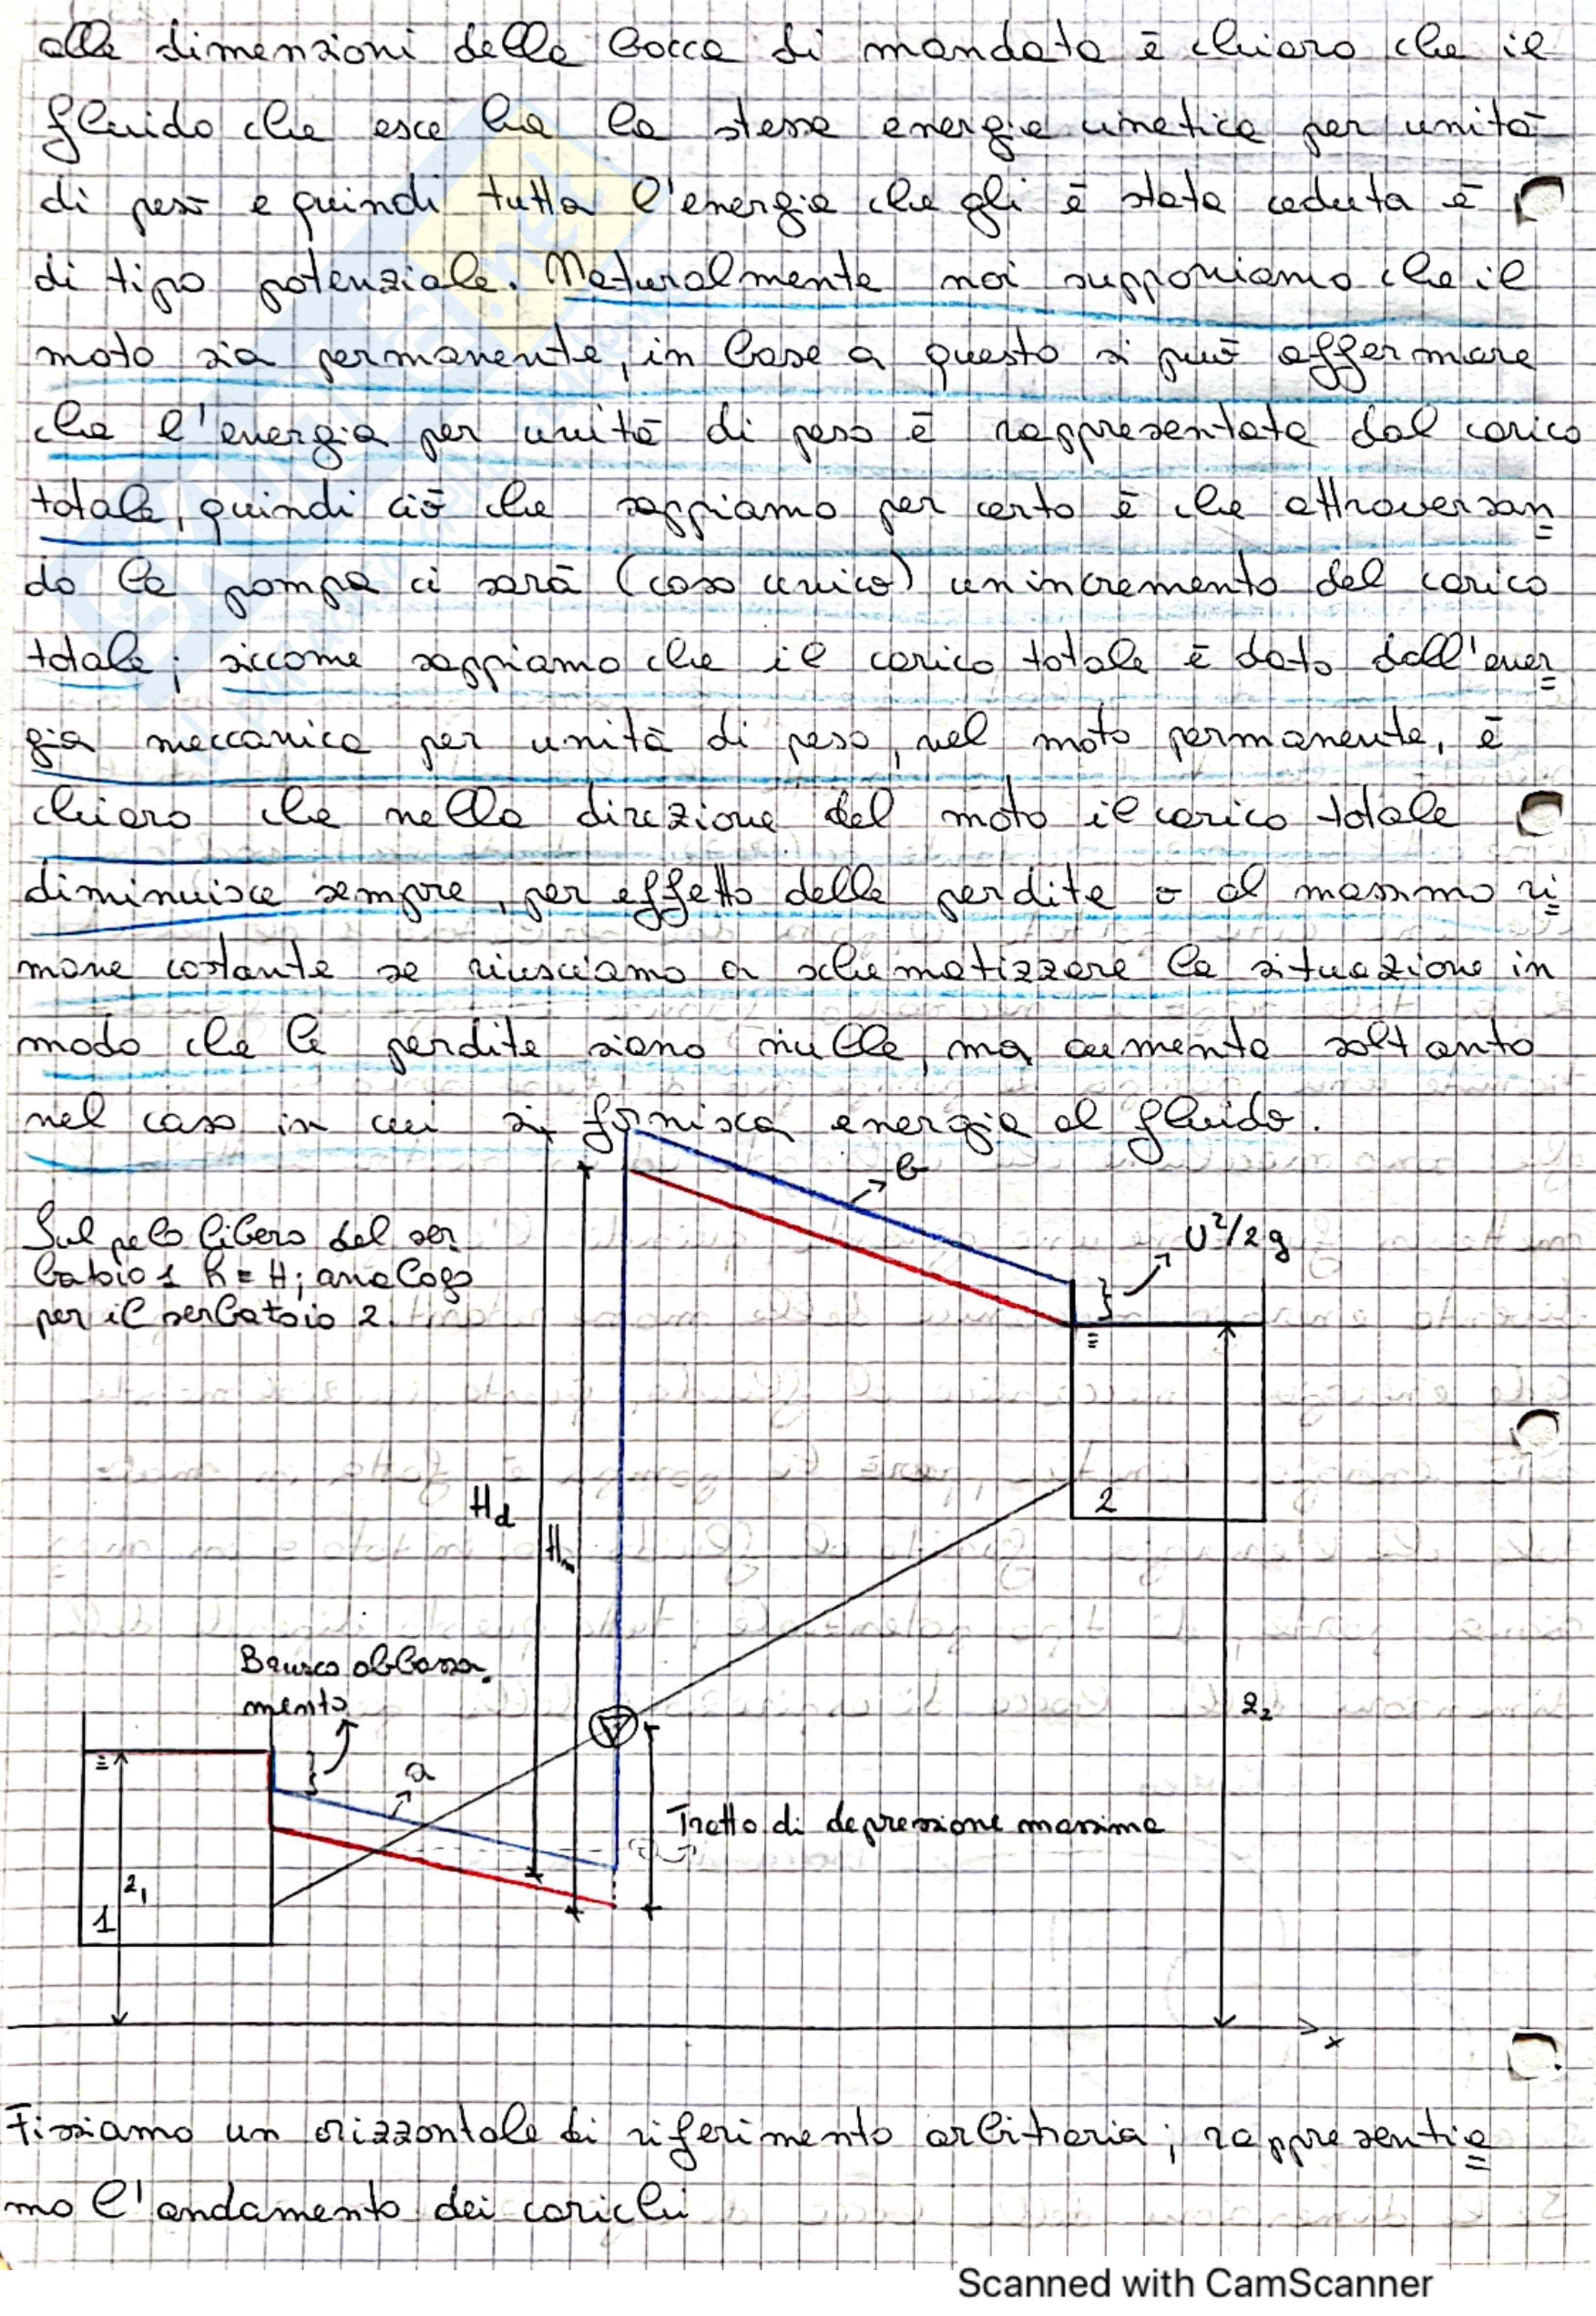 alle dimensioni della bocca di mandata è chiaro che il
fluido che esce ha la stessa energia cinetica per unità
di peso e quindi tutta l'energia che gli è stata ceduta è
di tipo potenziale. Naturalmente noi supponiamo che il
moto sia permanente, in base a questo si può affermare
che l'energia per unità di peso è rappresentata dal carico
totale, quindi ciò che sappiamo per certo è che attraversan
do la pompa ci sarà (caso unico) un incremento del carico
totale; siccome sappiamo che il carico totale è dato dall'ener
gia meccanica per unità di peso, nel moto permanente, è
chiaro che nella direzione del moto il carico totale
diminuisce sempre, per effetto delle perdite o al massimo ri
mane costante se riusciamo a schematizzare la situazione in
modo che le perdite siano nulle, ma aumenta soltanto
nel caso in cui si fornisca energia al fluido.
b
Sul pelo libero del ser
batoio 1 h = H; analogo
per il serbatoio 2.
U²/2g
2
Hd
Hm
Brusco abbassa
mento
z₂
a
Tratto di depressione massima
z₁
1
x
Fissiamo un orizzontale di riferimento arbitraria; rappresentia
mo l'andamento dei carichi
Scanned with CamScanner